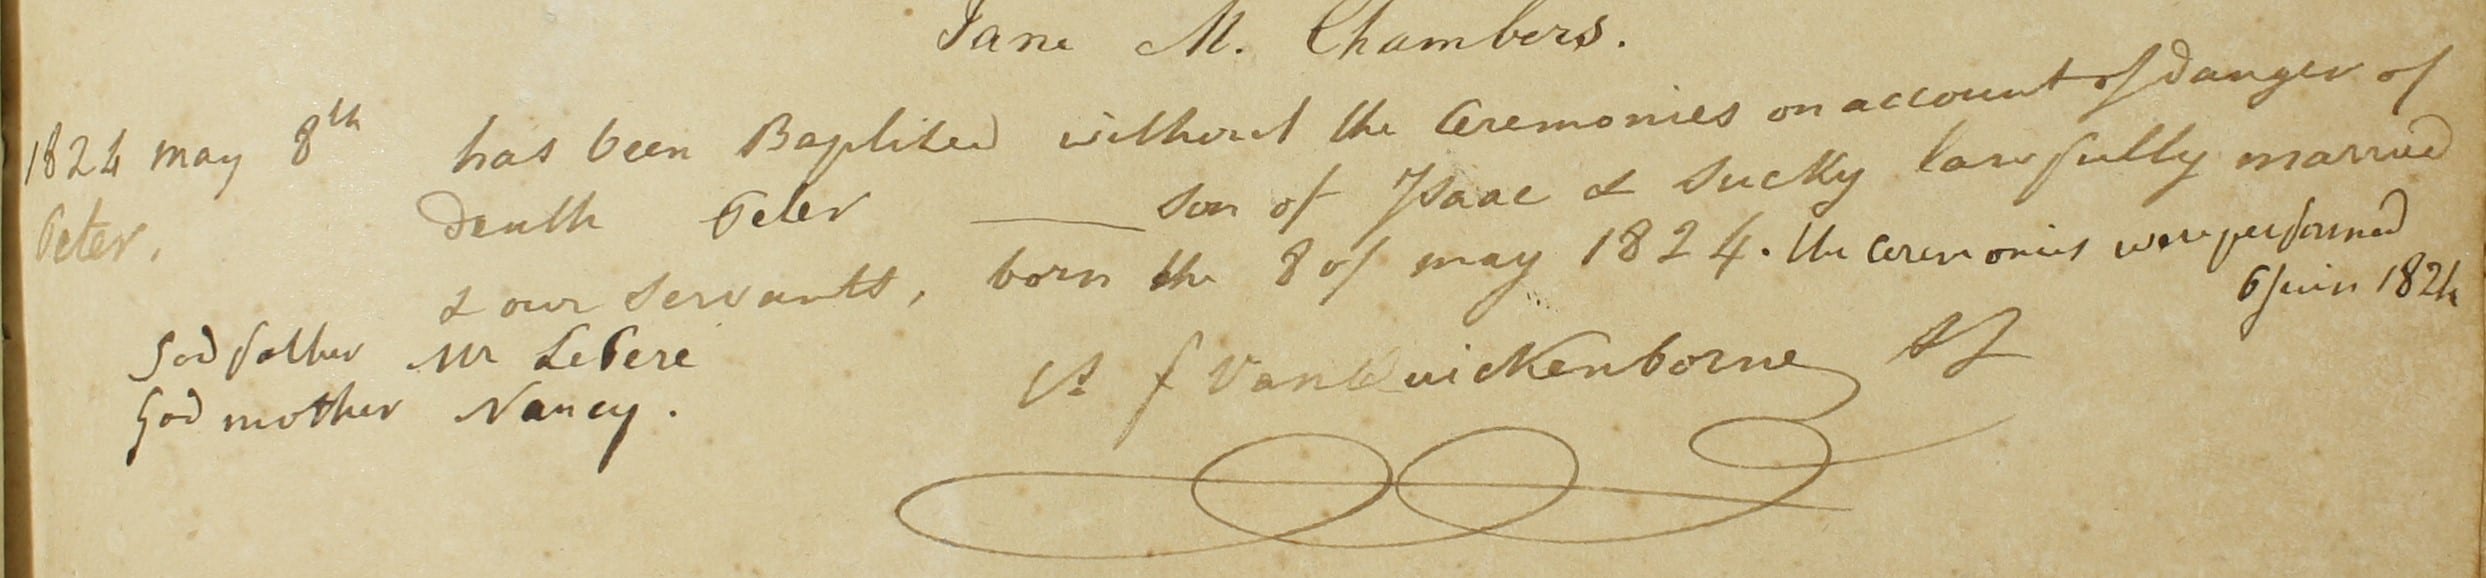 Jane M. Chambers.
1824 may 8th has been Baptised without the Ceremonies on account of danger of
Peter, death Peter — son of Isaac & Sucky lawfully married
& our servants, born the 8 of may 1824. the ceremonies were performed
6 Juin 1824
God father Mr LePere
God mother Nancy.
f VanQuickenborne SJ